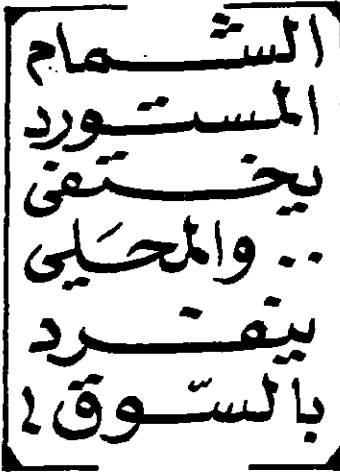 الشمام
المستورد
يختفى
.. والمحلى
ينفرد
بالسوق !